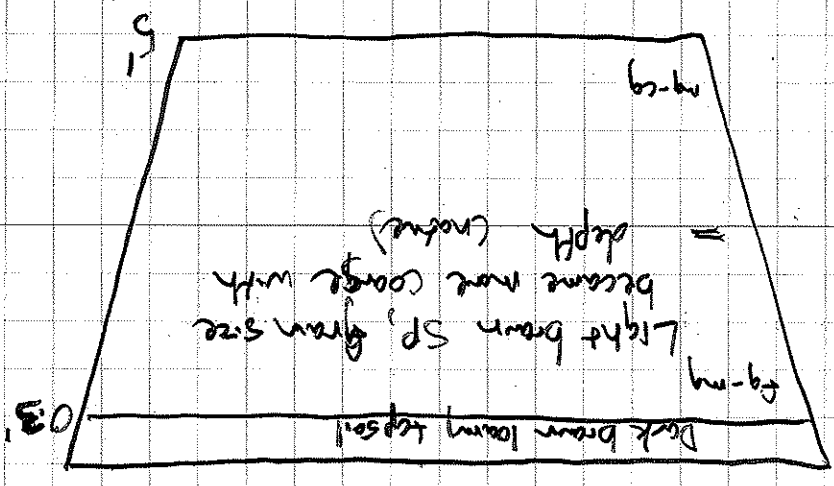 Dark brown loamy topsoil
0.3'
fg-mg
Light brown SP, grain size
became more coarse with
= depth (native)
mg-cg
5'